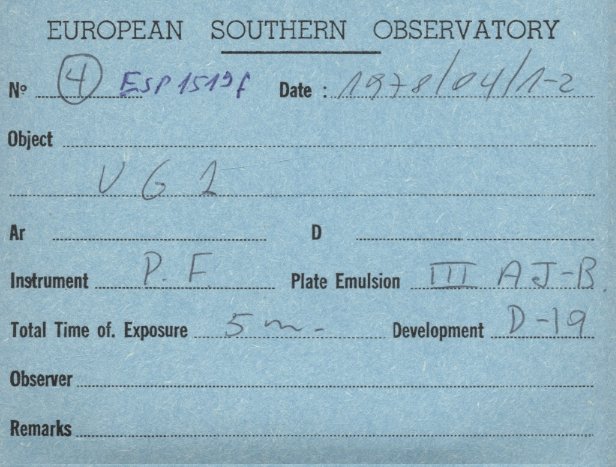 EUROPEAN SOUTHERN OBSERVATORY
Nº 4 ESP1519f Date : 1978/04/1-2
Object
VG1
Ar D
Instrument P. F. Plate Emulsion III AJ-B.
Total Time of. Exposure 5m- Development D-19
Observer
Remarks